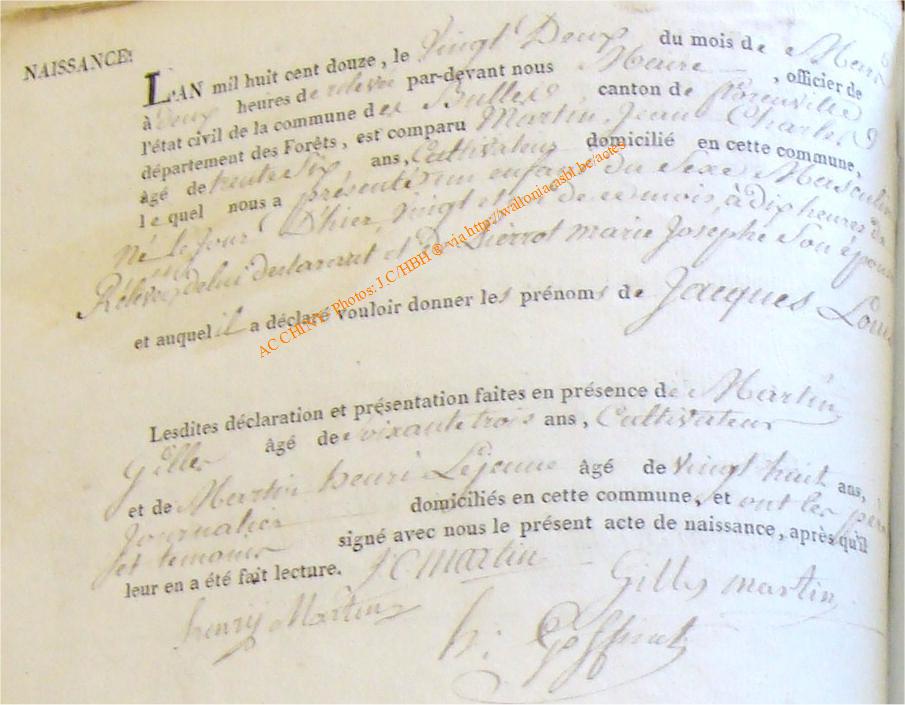 NAISSANCE:
L'AN mil huit cent douze, le Vingt Deux du mois de Mars
à deux heures de relevée par-devant nous Maire, officier de
l'état civil de la commune des Bulles, canton de florenville
département des Forêts, est comparu Martin Jean Charles
âgé de trente Six ans, Cultivateur domicilié en cette commune,
lequel nous a présenté un enfant du Sexe Masculin
Né Le Jour D'hier, Vingt et un de ce mois, à dix heures de
Rélevée, de lui déclarant et de Pierrot marie Josephe Son épouse
et auquel il a déclaré vouloir donner les prénoms de Jacques Louis
Lesdites déclaration et présentation faites en présence de Martin
Gilles âgé de soixante trois ans, Cultivateur
et de Martin henri Lejeune âgé de vingt huit ans,
Journalier domiciliés en cette commune, et ont les père
et temoins signé avec nous le présent acte de naissance, après qu'il
leur en a été fait lecture. J C martin
Gilles martin
henry Martin
h: Goffinet
ACCHINY Photos: J.C/HBH ® via http://walloniacasbl.be/actes